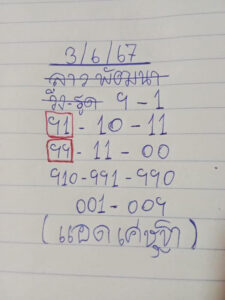 3/6/67
ลาวพัฒนา
วิ่ง-รูด 9-1
91-10-11
99-11-00
910-991-990
001-009
(แอดเศรษฐีฯ)